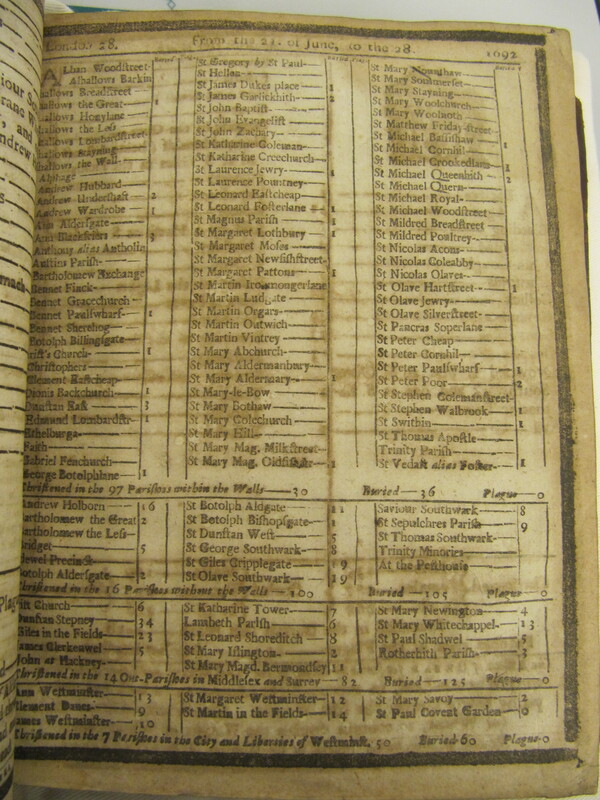 London 28. From the 21. of June, to the 28. 1692
Alban Woodstreet
Alhallows Barkin
allows Breadstreet
allows the Great 1
allows Honylane
allows the Less
allows Lombardstreet
allows Stayning
allows the Wall
Alphage
Andrew Hubbard
Andrew Undershaft 2
Andrew Wardrobe 1
Ann Aldersgate
Ann Blackfriars 3
Anthony alias Antholin
Austins Parish
Bartholomew Exchange
Bennet Finck
Bennet Gracechurch
Bennet Paulswharf 1
Bennet Sherehog
Botolph Billingsgate
rist's Church 1
Christophers
Clement Eastcheap
Dionis Backchurch 1
Dunstan East 3
Edmund Lombardstr 1
Ethelburga
Faith
Gabriel Fenchurch
George Botolphlane 1
St Gregory by St Paul
St Hellen
St James Dukes place 1
St James Garlickhith 2
St John Baptist
St John Evangelist
St John Zachary
St Katharine Coleman
St Katharine Creechurch
St Laurence Jewry 1
St Laurence Pountney
St Leonard Eastcheap
St Leonard Fosterlane 1
St Magnus Parish 1
St Margaret Lothbury 1
St Margaret Moses
St Margaret Newfishstreet
St Margaret Pattons 1
St Martin Ironmongerlane
St Martin Ludgate
St Martin Orgars
St Martin Outwich
St Martin Vintrey
St Mary Abchurch
St Mary Aldermanbury
St Mary Aldermary 1
St Mary-le-Bow
St Mary Bothaw
St Mary Colechurch
St Mary Hill
St Mary Mag. Milkstreet
St Mary Mag. Oldfishstr 1
St Mary Mounthaw
St Mary Sommerset
St Mary Stayning
St Mary Woolchurch
St Mary Woolnoth
St Matthew Friday-street
St Michael Bassishaw
St Michael Cornhil 1
St Michael Crookedlane
St Michael Queenhith 2
St Michael Quern
St Michael Royal
St Michael Woodstreet
St Mildred Breadstreet
St Mildred Poultrey
St Nicolas Acons
St Nicolas Coleabby
St Nicolas Olaves
St Olave Hartstreet 1
St Olave Jewry
St Olave Silverstreet
St Pancras Soperlane
St Peter Cheap
St Peter Cornhil
St Peter Paulswharf 1
St Peter Poor 2
St Stephen Colemanstreet
St Stephen Walbrook 1
St Swithin 1
St Thomas Apostle
Trinity Parish
St Vedast alias Foster 1
Christened in the 97 Parishes within the Walls 30 Buried 36 Plague 0
Andrew Holborn 16
artholomew the Great 2
artholomew the Less
ridget 5
dewel Precinct
otolph Aldersgate 2
St Botolph Aldgate 11
St Botolph Bishopsgate 1
St Dunstan West 5
St George Southwark 8
St Giles Cripplegate 9
St Olave Southwark 19
Saviour Southwark 8
St Sepulchres Parish 9
St Thomas Southwark
Trinity Minories
At the Pesthouse
Christened in the 16 Parishes without the Walls 100 Buried 105 Plague 0
ist Church 6
Dunstan Stepney 34
Giles in the Fields 23
James Clerkenwel 5
John at Hackney
St Katharine Tower 7
Lambeth Parish 6
St Leonard Shoreditch 8
St Mary Islington 2
St Mary Magd. Bermondsey 11
St Mary Newington 4
St Mary Whitechappel 13
St Paul Shadwel 5
Rotherhith Parish 3
Christened in the 14 Out-Parishes in Middlesex and Surrey 82 Buried 125 Plague 0
Ann Westminster 13
Clement Danes 9
James Westminster 10
St Margaret Westminster 12
St Martin in the Fields 14
St Mary Savoy 2
St Paul Covent Garden 0
Christened in the 7 Parishes in the City and Liberties of Westminst. 50 Buried 60 Plague 0